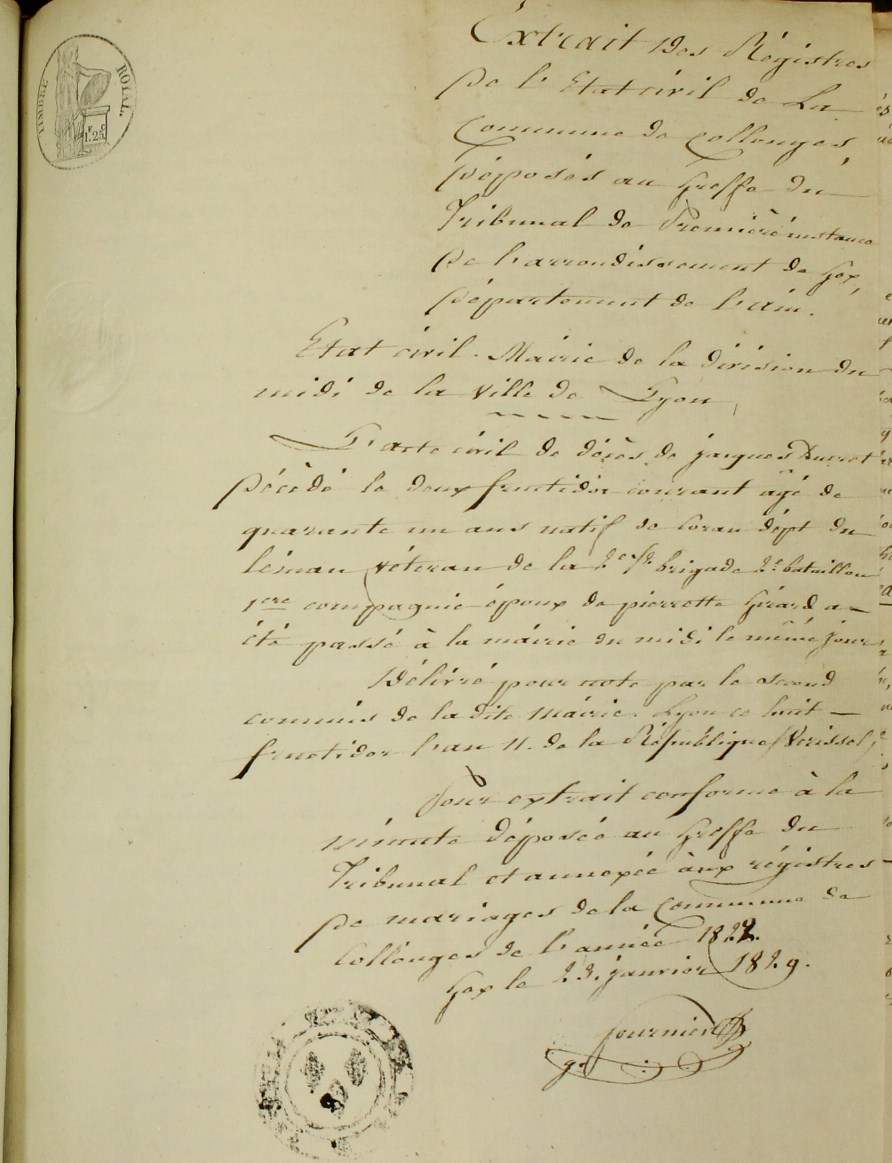 TIMBRE ROYAL
1.25
Extrait Des Régistres
De l'Etat civil de La
Commune de Collonges
Déposés au Greffe du
Tribunal de Première instance
De l'arrondissement de Gex,
Département de l'ain.
Etat civil. Mairie de la division du
midi de la Ville de Lyon
L'acte civil de décès de jacques
Décédé le deux fructidor courant agé de
quarante un ans natif de dépt du
léman vétéran de la brigade 2e bataillon
1ere compagnie époux de pierrette Girard a
été passé à la mairie du midi le même jour
Délivré pour note par le second
commis de la dite Mairie. Lyon ce huit
fructidor l'an 11. de la République
Pour extrait conforme à la
minute déposée au Greffe du
Tribunal et annexée aux régistres
De mariages de la Commune de
Collonges de l'année
Gex le 23. janvier 1829.
fournier